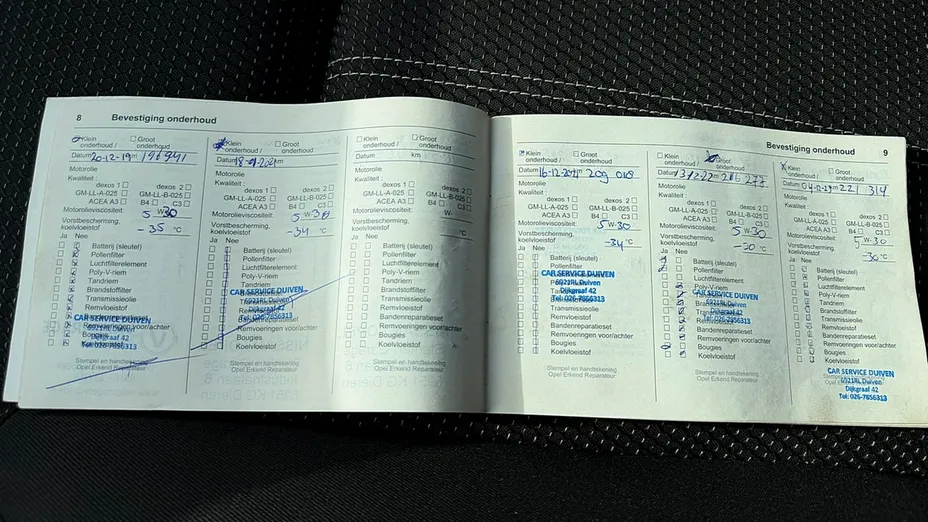 8 Bevestiging onderhoud
Klein onderhoud / Groot onderhoud
Datum 20-12-19 km 196941
Motorolie
Kwaliteit :
dexos 1 dexos 2
GM-LL-A-025 GM-LL-B-025
ACEA A3 B4 C3
Motorolieviscositeit: 5 W-30
Vorstbescherming,
koelvloeistof -35 °C
Ja Nee
Batterij (sleutel)
Pollenfilter
Luchtfilterelement
Poly-V-riem
Tandriem
Brandstoffilter
Transmissieolie
Remvloeistof
CAR SERVICE DUIVEN
Remvoeringen voor/achter
6921RL Duiven
Dijkgraaf 42
Tel: 026-7856313
Stempel en handtekening
Opel Erkend Reparateur
Klein onderhoud / Groot onderhoud
Datum km
Motorolie
Kwaliteit :
dexos 1 dexos 2
GM-LL-A-025 GM-LL-B-025
ACEA A3 B4 C3
Motorolieviscositeit: 5 W-30
Vorstbescherming,
koelvloeistof -34 °C
Ja Nee
Batterij (sleutel)
Pollenfilter
Luchtfilterelement
Poly-V-riem
Tandriem
CAR SERVICE DUIVEN
6921RL Duiven
Dijkgraaf 42
Tel: 026-7856313
Remvoeringen voor/achter
Bougies
Koelvloeistof
Stempel en handtekening
Opel Erkend Reparateur
Klein onderhoud / Groot onderhoud
Datum km
Motorolie
Kwaliteit :
dexos 1 dexos 2
GM-LL-A-025 GM-LL-B-025
ACEA A3 B4 C3
Motorolieviscositeit:
W-
Vorstbescherming,
koelvloeistof °C
Ja Nee
Batterij (sleutel)
Pollenfilter
Luchtfilterelement
Poly-V-riem
Tandriem
Brandstoffilter
Transmissieolie
Remvloeistof
Bandenreparatieset
Remvoeringen voor/achter
Bougies
Koelvloeistof
Stempel en handtekening
Opel Erkend Reparateur
Bevestiging onderhoud 9
Klein onderhoud / Groot onderhoud
Datum 16-12-2021 209 018
Motorolie
Kwaliteit :
dexos 1 dexos 2
GM-LL-A-025 GM-LL-B-025
ACEA A3 B4 C3
Motorolieviscositeit: 5 W-30
Vorstbescherming,
koelvloeistof -34 °C
Ja Nee
Batterij (sleutel)
Pollenfilter
CAR SERVICE DUIVEN
6921RL Duiven
Dijkgraaf 42
Tel: 026-7856313
Transmissieolie
Remvloeistof
Bandenreparatieset
Remvoeringen voor/achter
Bougies
Koelvloeistof
Stempel en handtekening
Opel Erkend Reparateur
Klein onderhoud / Groot onderhoud
Datum 13/12/22 216 277
Motorolie
Kwaliteit :
dexos 1 dexos 2
GM-LL-A-025 GM-LL-B-025
ACEA A3 B4 C3
Motorolieviscositeit: 5 W-30
Vorstbescherming,
koelvloeistof °C
Ja Nee
Batterij (sleutel)
Pollenfilter
Luchtfilterelement
Poly-V-riem
CAR SERVICE DUIVEN
6921RL Duiven
Dijkgraaf 42
Tel: 026-7856313
Bandenreparatieset
Remvoeringen voor/achter
Bougies
Koelvloeistof
Stempel en handtekening
Opel Erkend Reparateur
Klein onderhoud / Groot onderhoud
Datum km 221 314
Motorolie
Kwaliteit :
dexos 1 dexos 2
GM-LL-A-025 GM-LL-B-025
ACEA A3 B4 C3
Motorolieviscositeit: 5 W-30
Vorstbescherming,
koelvloeistof -30 °C
Ja Nee
Batterij (sleutel)
Pollenfilter
Luchtfilterelement
Poly-V-riem
Tandriem
Brandstoffilter
Transmissieolie
Remvloeistof
Bandenreparatieset
Remvoeringen voor/achter
Bougies
Koelvloeistof
CAR SERVICE DUIVEN
6921RL Duiven
Dijkgraaf 42
Tel: 026-7856313